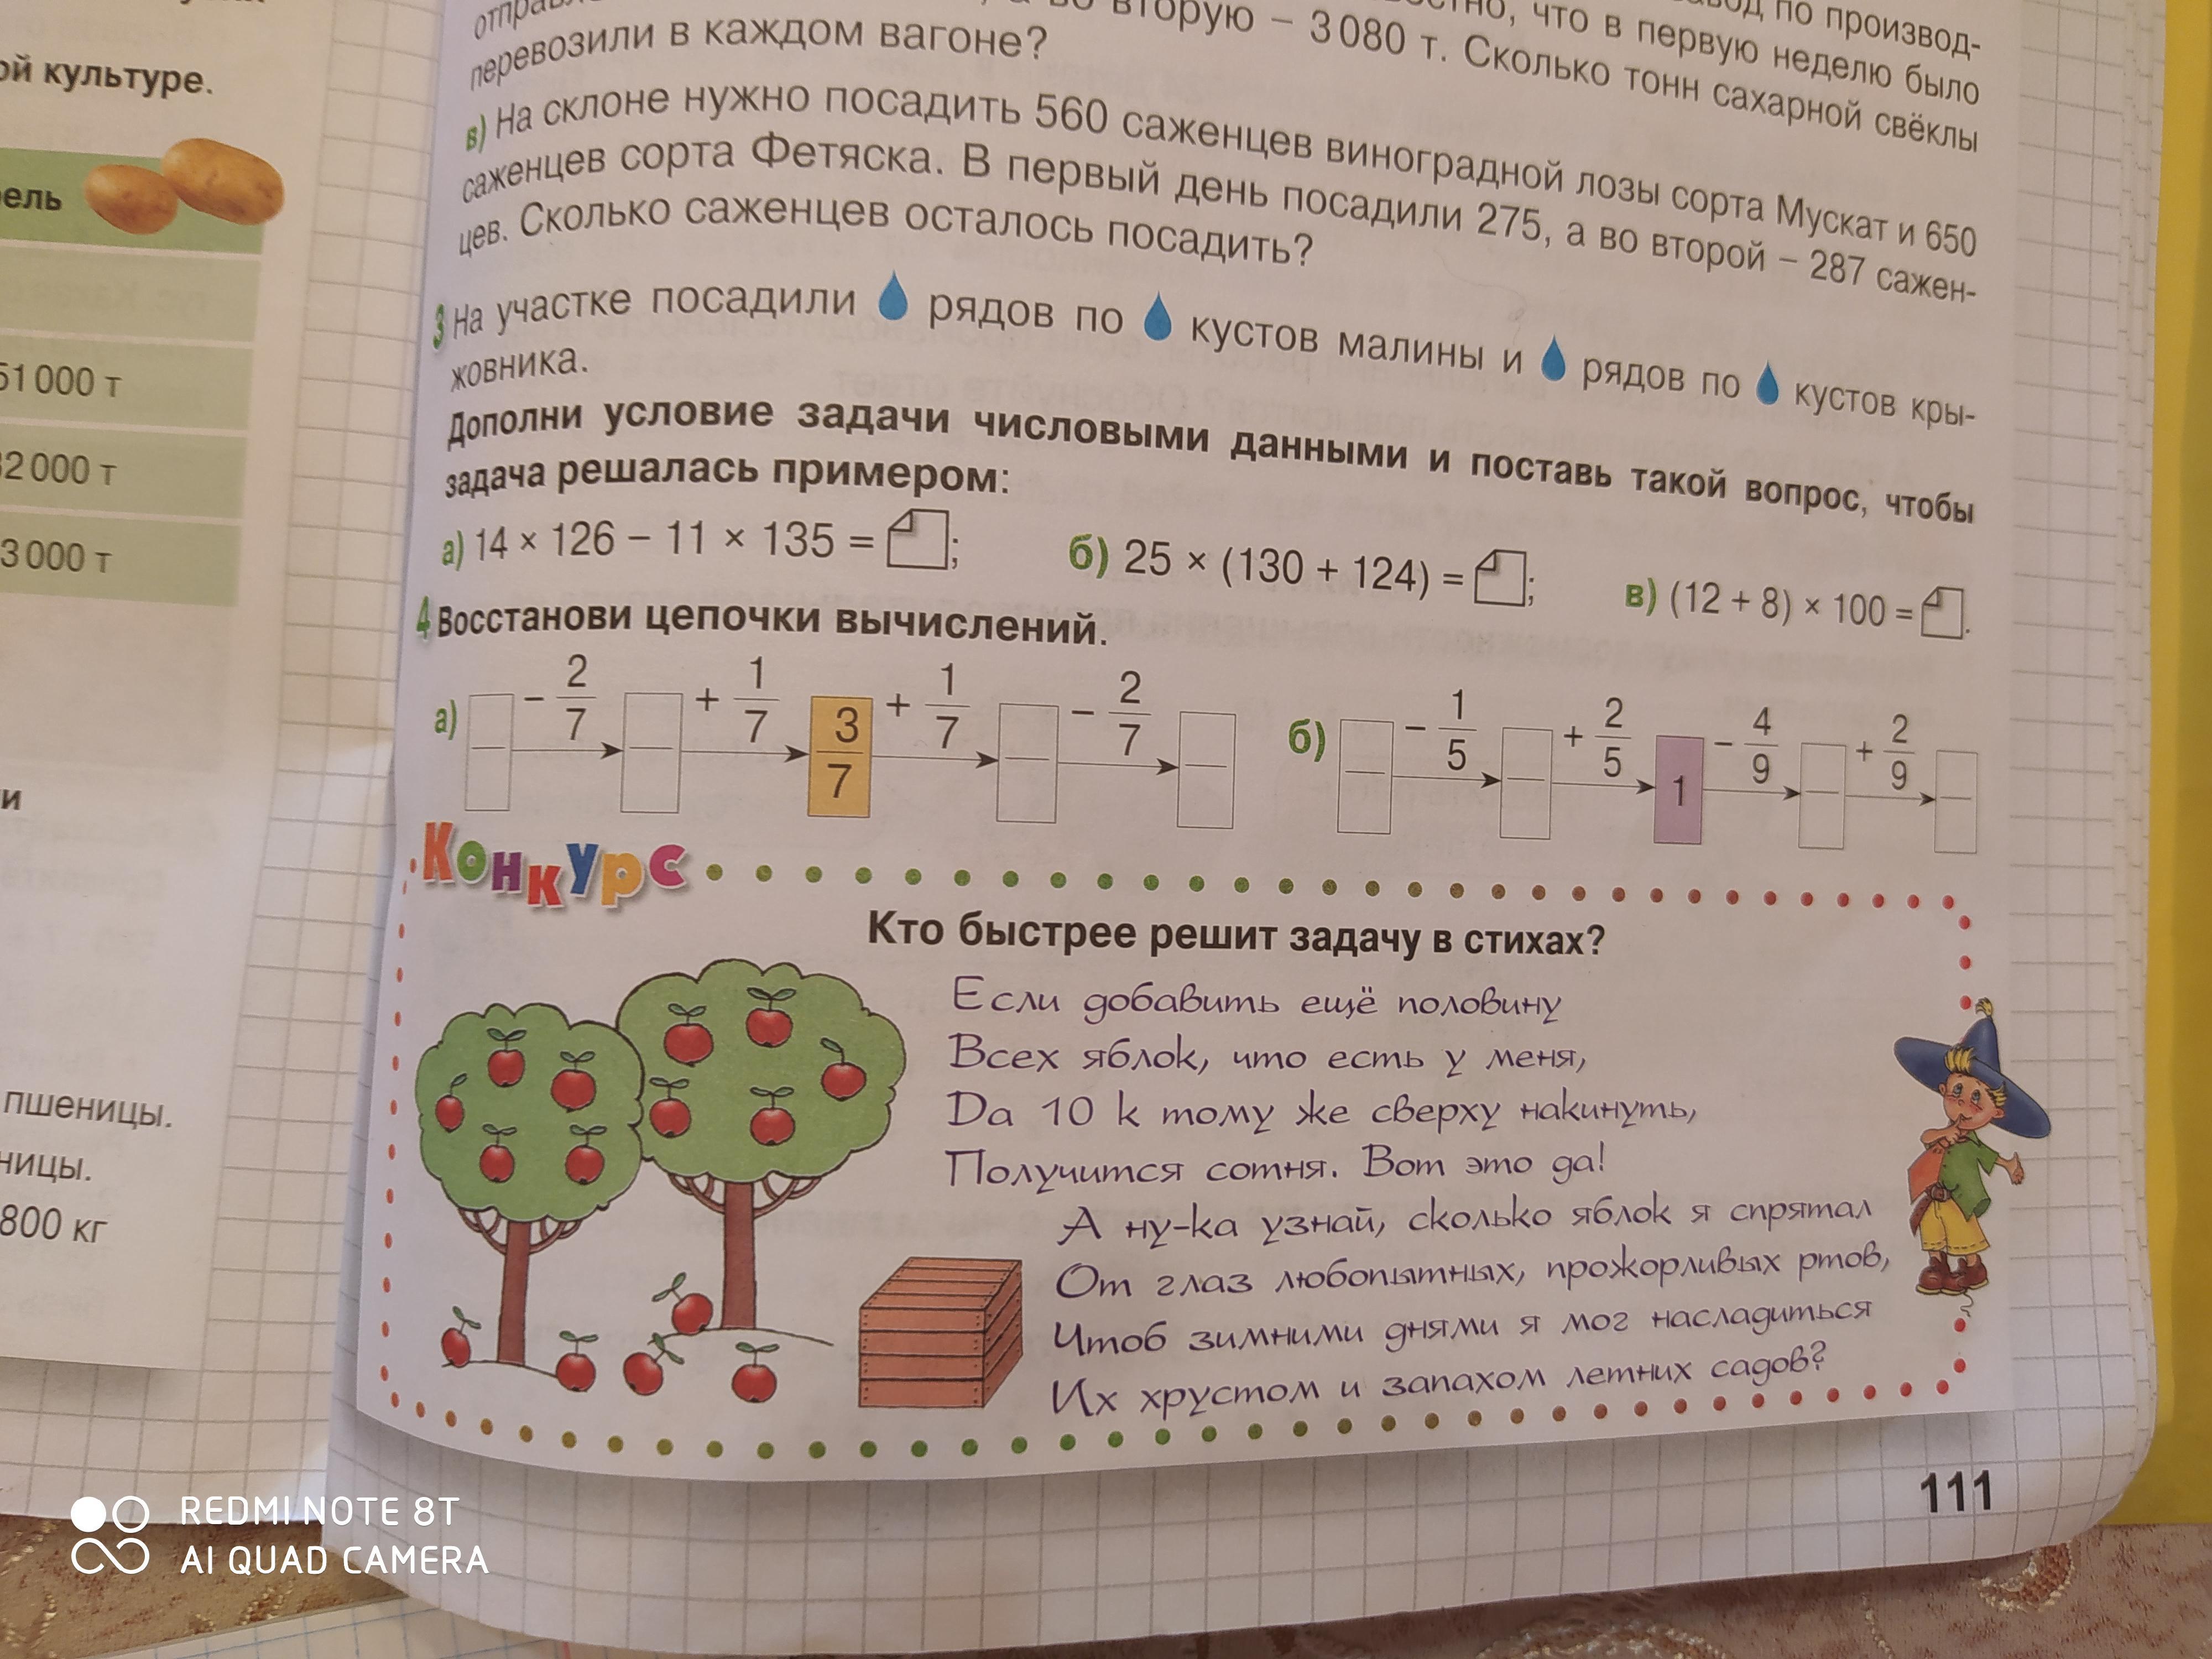 ой культуре.
ель
51 000 т
32 000 т
3 000 т
и
пшеницы.
ницы.
800 кг
по производ-
что в первую неделю было
вторую – 3 080 т. Сколько тонн сахарной свёклы
перевозили в каждом вагоне?
в) На склоне нужно посадить 560 саженцев виноградной лозы сорта Мускат и 650
саженцев сорта Фетяска. В первый день посадили 275, а во второй – 287 сажен-
цев. Сколько саженцев осталось посадить?
3 На участке посадили рядов по кустов малины и рядов по кустов кры-
жовника.
Дополни условие задачи числовыми данными и поставь такой вопрос, чтобы
задача решалась примером:
а) 14 × 126 – 11 × 135 = ; б) 25 × (130 + 124) = ; в) (12 + 8) × 100 = .
4 Восстанови цепочки вычислений.
а) – 2/7 + 1/7 3/7 + 1/7 – 2/7 б) – 1/5 + 2/5 1 – 4/9 + 2/9
Конкурс
Кто быстрее решит задачу в стихах?
Если добавить ещё половину
Всех яблок, что есть у меня,
Да 10 к тому же сверху накинуть,
Получится сотня. Вот это да!
А ну-ка узнай, сколько яблок я спрятал
От глаз любопытных, прожорливых ртов,
Чтоб зимними днями я мог насладиться
Их хрустом и запахом летних садов?
111
REDMI NOTE 8T
AI QUAD CAMERA